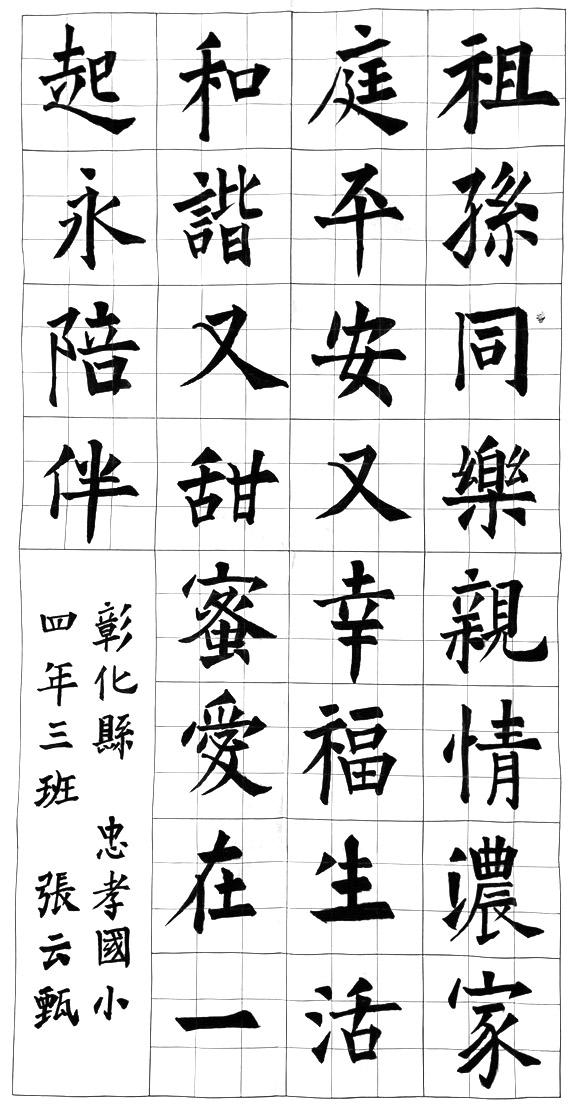 祖孫同樂親情濃家
庭平安又幸福生活
和諧又甜蜜愛在一
起永陪伴
彰化縣 忠孝國小
四年三班 張云甄